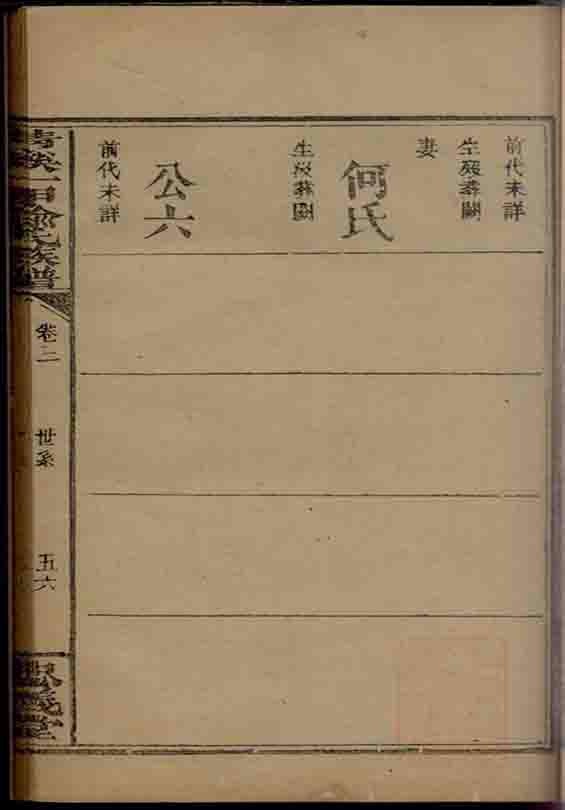 前代未詳
生歿葬闕
妻
何氏
生歿葬闕
公六
前代未詳
族譜
卷二
世系
五六
義堂